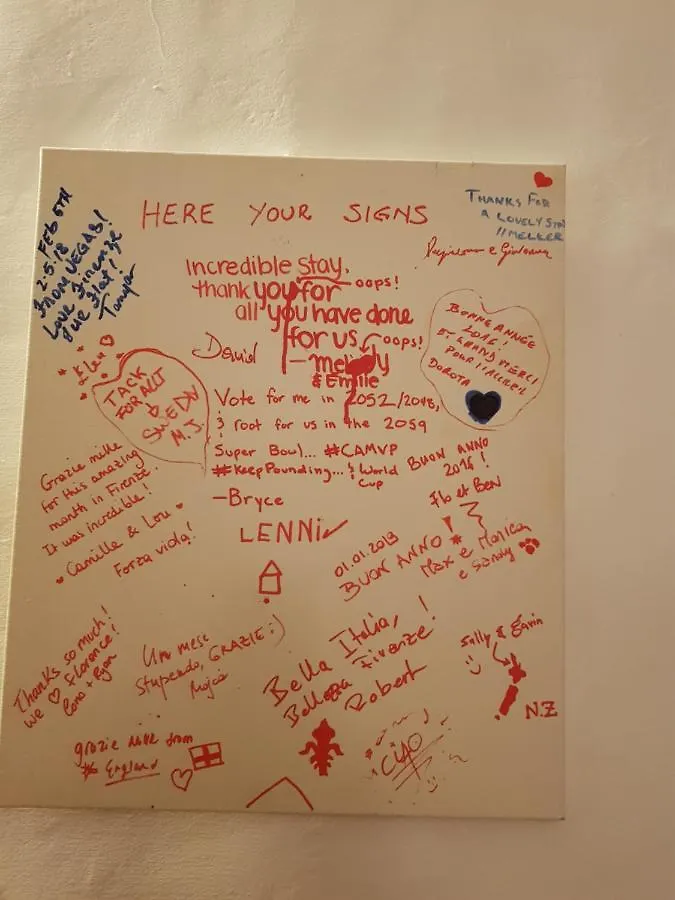 HERE YOUR SIGNS
THANKS FOR
A LOVELY STAY
//MELKER
FEB 6TH
2-5.18
FROM VEGAS!
Love Firenze
the Flat!
Tanya
Incredible stay.
thank you for oops!
all you have done
for us oops!
—melody
& Emilie
Daniel
BONNE ANNÉE
2016!
ET GRAND MERCI
POUR L'ACCUEIL
DOROTA
TACK
FOR ALLT
SWEDEN
M.J.
Vote for me in 2052/2048,
& root for us in the 2059
Super Bowl... #CAMVP
#KeepPounding... & World
Cup
—Bryce
BUON ANNO
2016!
Flo et Ben
Grazie mille
for this amazing
month in Firenze.
It was incredible!
Camille & Lou
Forza viola!
LENNI
01.01.2019
BUON ANNO!
Max e Monica
e Sandy
Thanks so much!
we Florence!
+ Ryan
Un mese
stupendo, GRAZIE :)
Bella Italia,
Bellezza Firenze!
Robert
Sally & Gavin
N.Z
grazie mille from
England
CIAO